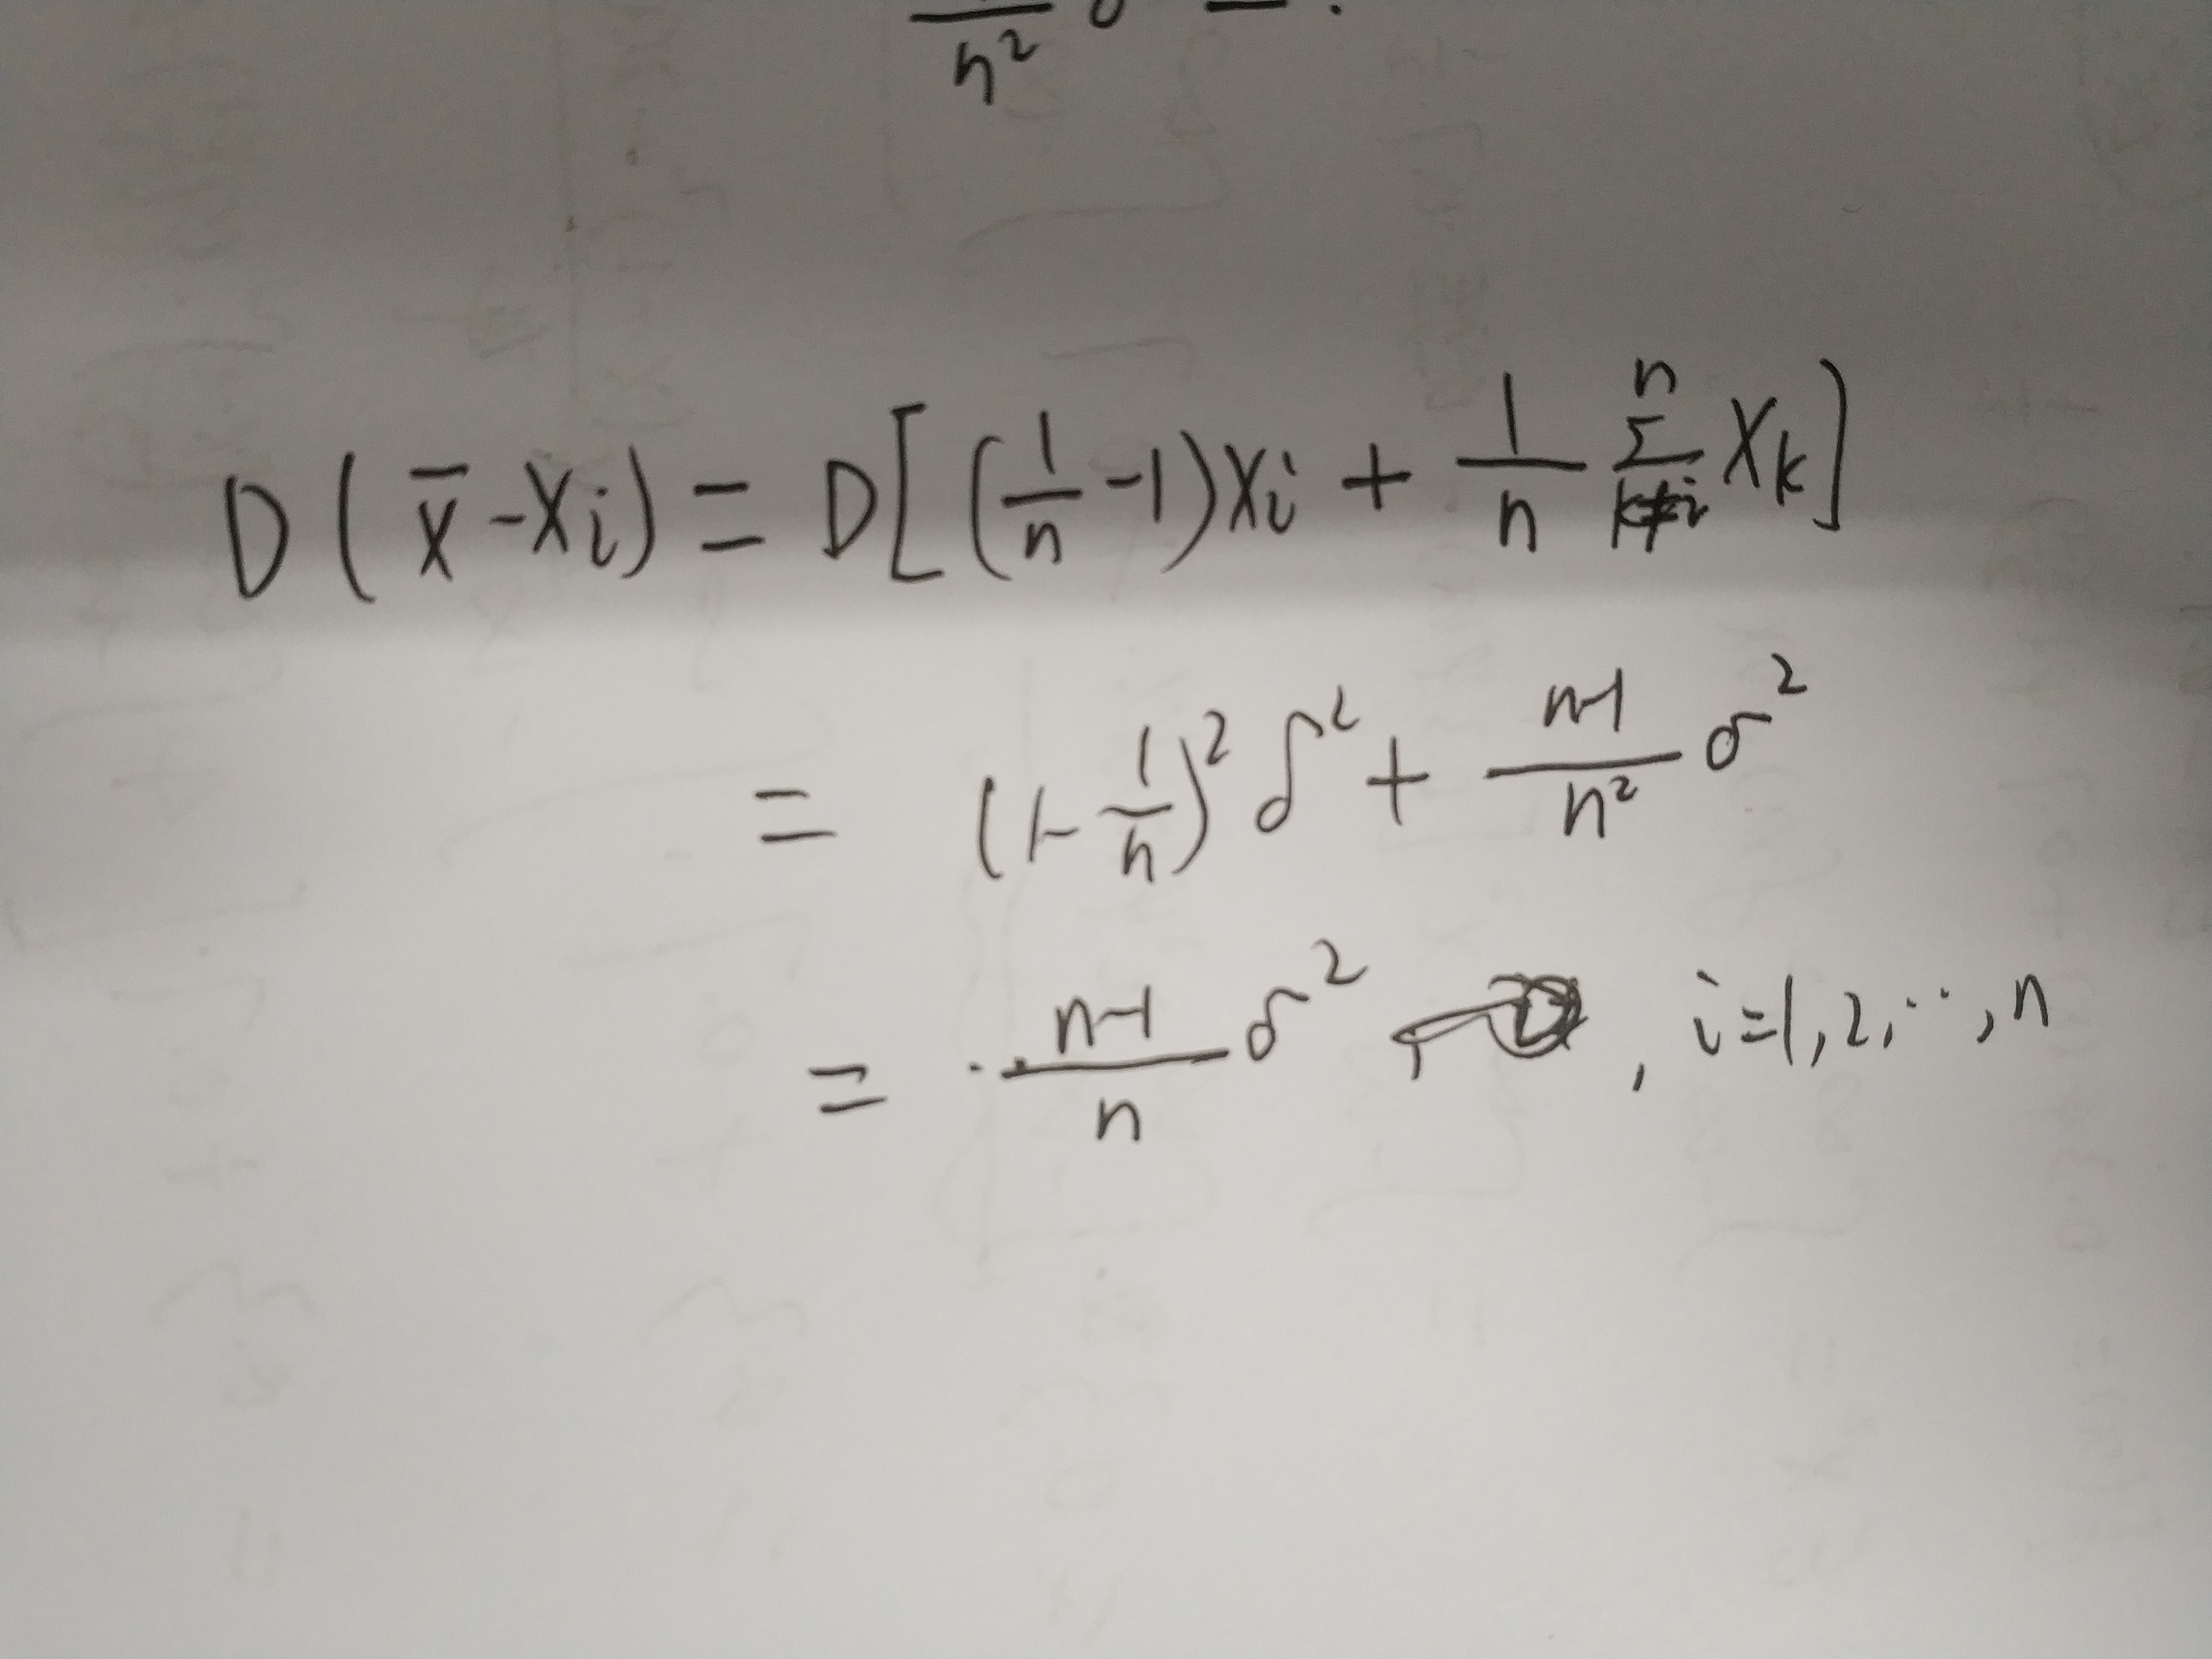 n²
D(x̄-Xi)=D[(1/n-1)Xi+1/n Σ_{k≠i}^{n} Xk]
=(1-1/n)²σ²+(n-1)/n² σ²
=(n-1)/n σ² , i=1,2,…,n